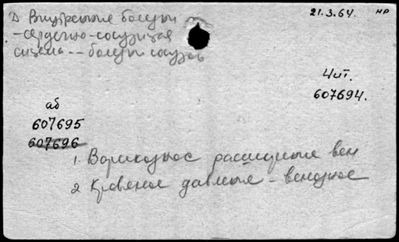 Внутренние болезни
21.3.64. нр
-сердечно-сосудистая
система -- болезни сосудов
Чит.
607694.
аб
607695
607696
1. Варикозное расширение вен
2 Кровяное давление - венозное